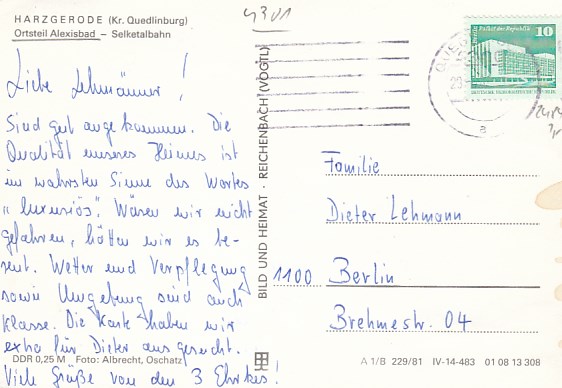 HARZGERODE (Kr. Quedlinburg)
Ortsteil Alexisbad – Selketalbahn
4301
Liebe Lehmänner!
Sind gut angekommen. Die
Qualität unseres Heimes ist
im wahrsten Sinne des Wortes
„luxuriös“. Wären wir nicht
gefahren, hätten wir es be-
reut. Wetter und Verpflegung
sowie Umgebung sind auch
Klasse. Die Karte haben wir
extra für Dieter ausgesucht.
Viele Grüße von den 3
DDR 0,25 M Foto: Albrecht, Oschatz
BILD UND HEIMAT · REICHENBACH (VOGTL)
10
Palast der Republik
Familie
Dieter Lehmann
1100 Berlin
Brehmestr. 04
A 1/B 229/81 IV-14-483 01 08 13 308